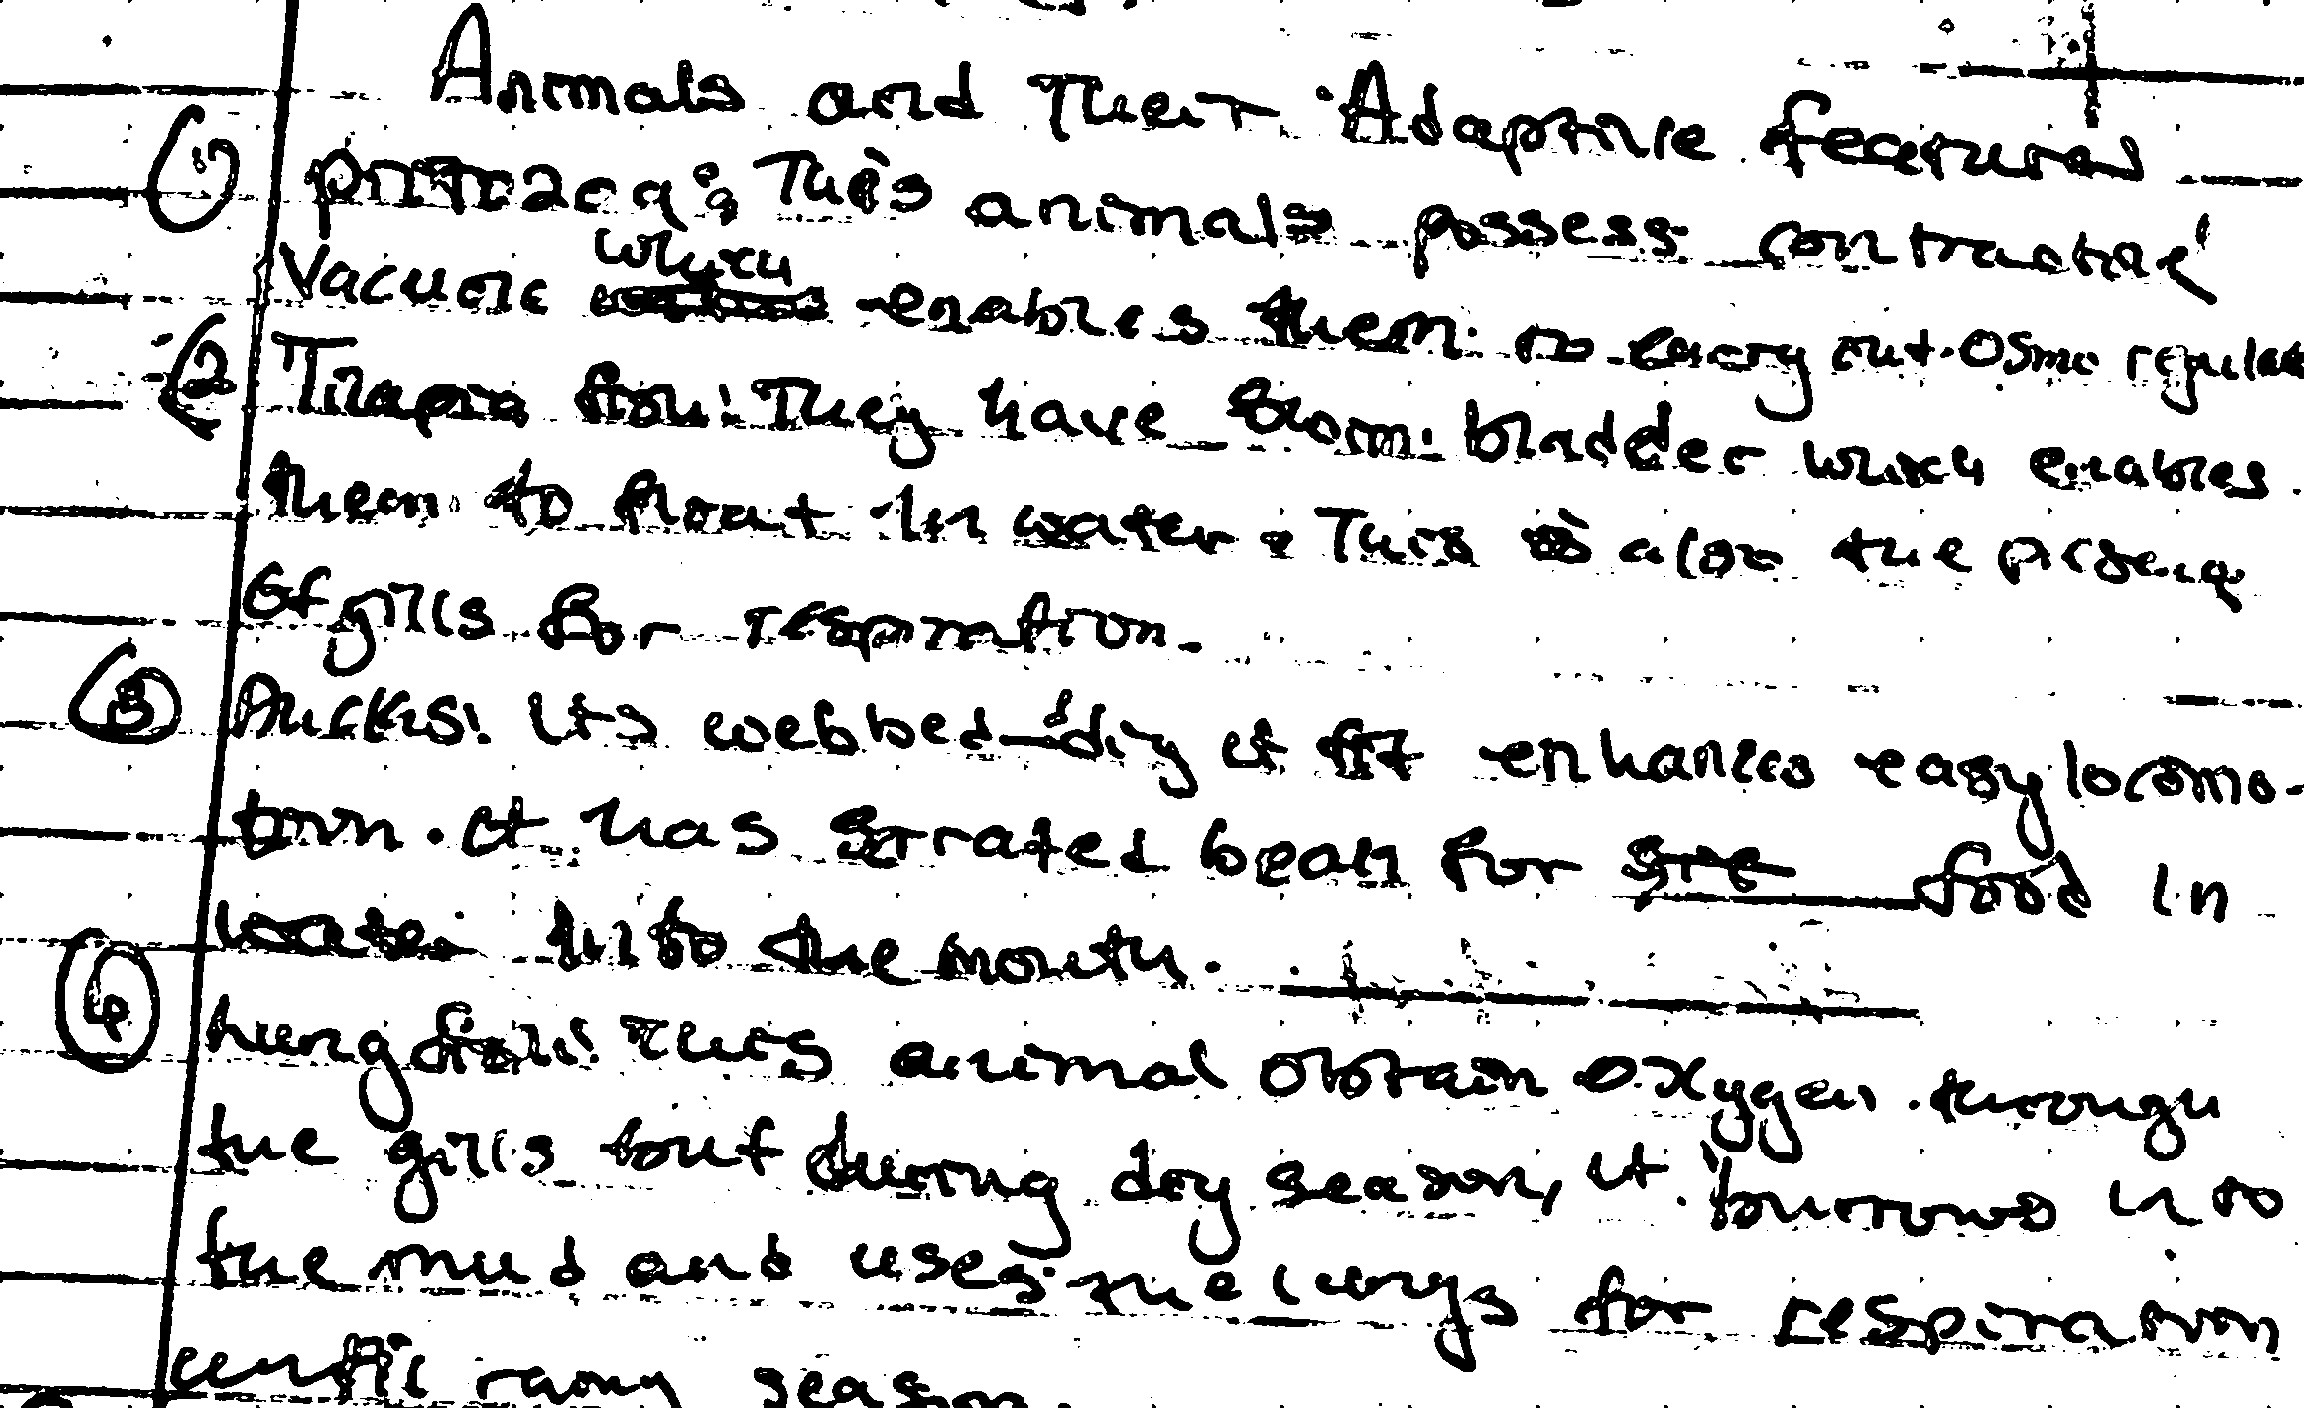 Animals and Their Adaptive features
① protozoa: This animals possess contractile
Vacuole which enables them to carry out Osmo regulat
② Tilapia fish: They have swim bladder which enables
them to float in water. This is also the presence
of gills for respiration.
③ Ducks: Its webbed digit it enhances easy locomo-
tion. It has serrated beak for food in
water into the mouth.
④ Lungfish: This animal obtain oxygen through
the gills but during dry season, it burrows into
the mud and uses the lungs for respiration
until rainy season.